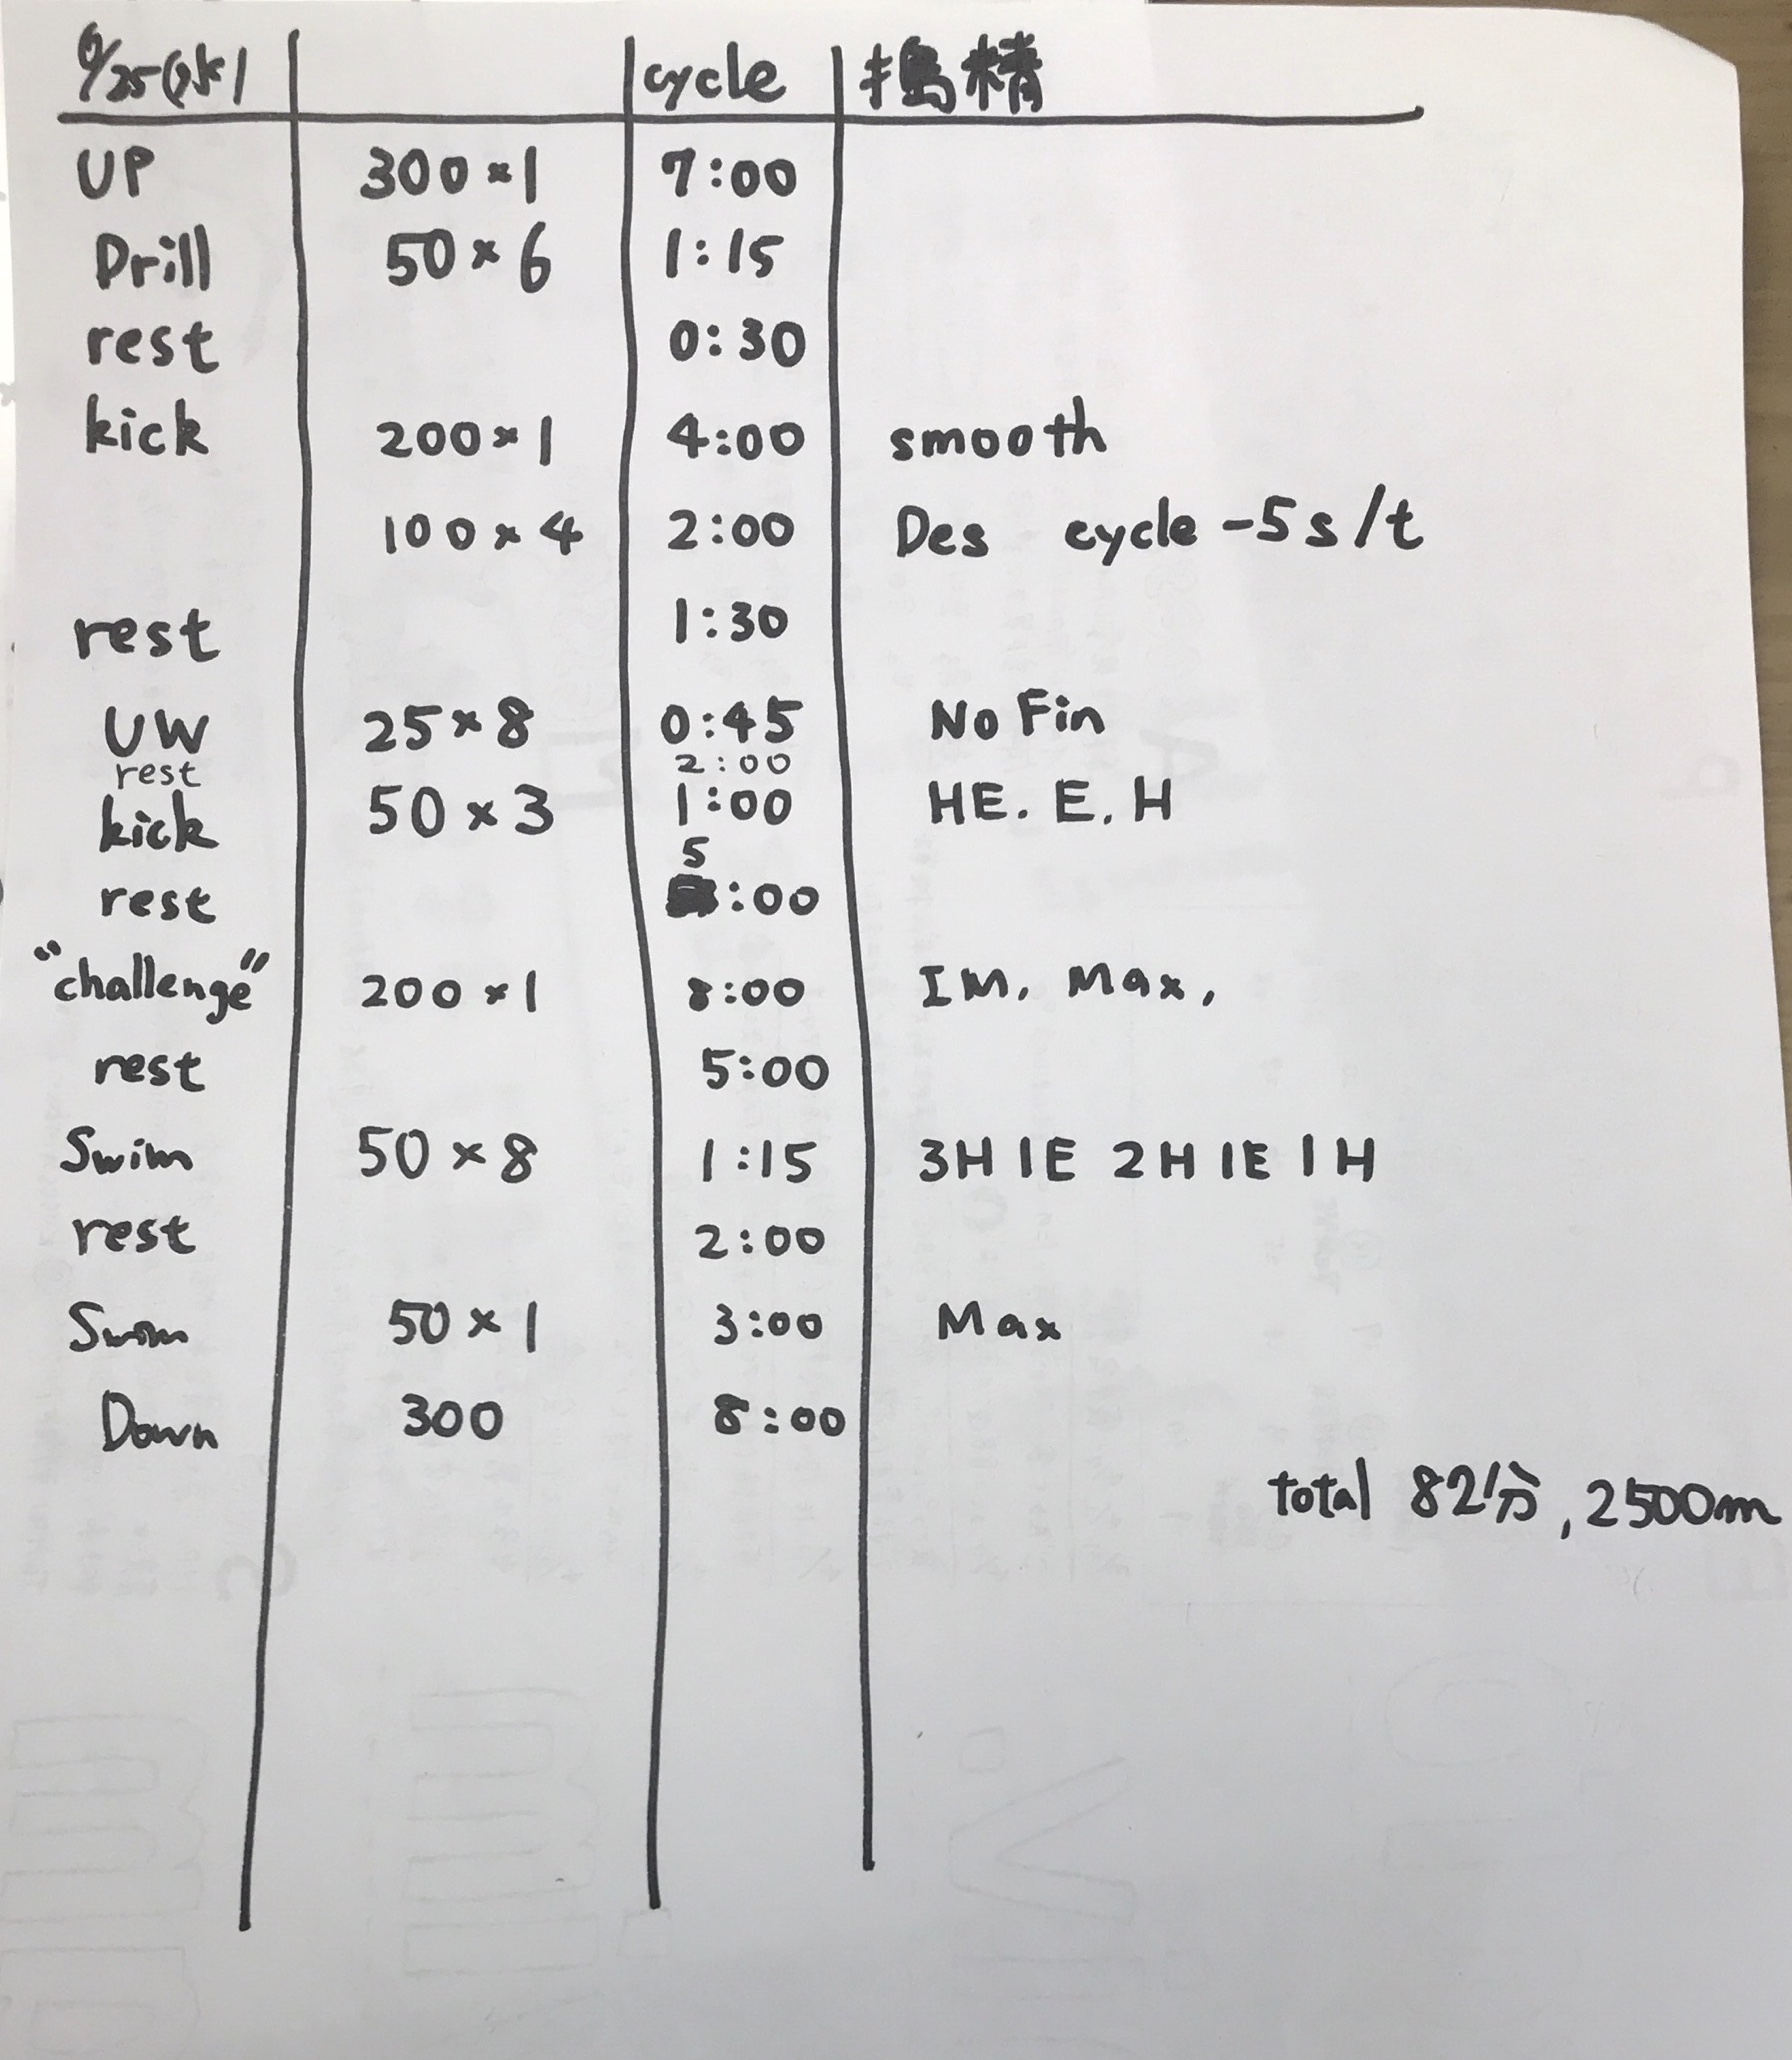 9/25(水) cycle 搗精
UP 300×1 7:00
Drill 50×6 1:15
rest 0:30
kick 200×1 4:00 smooth
100×4 2:00 Des cycle -5s/t
rest 1:30
UW 25×8 0:45 No Fin
rest 2:00
kick 50×3 1:00 HE. E. H
5
rest :00
"challenge" 200×1 8:00 IM. Max.
rest 5:00
Swim 50×8 1:15 3H 1E 2H 1E 1H
rest 2:00
Swim 50×1 3:00 Max
Down 300 8:00
total 82分, 2500m